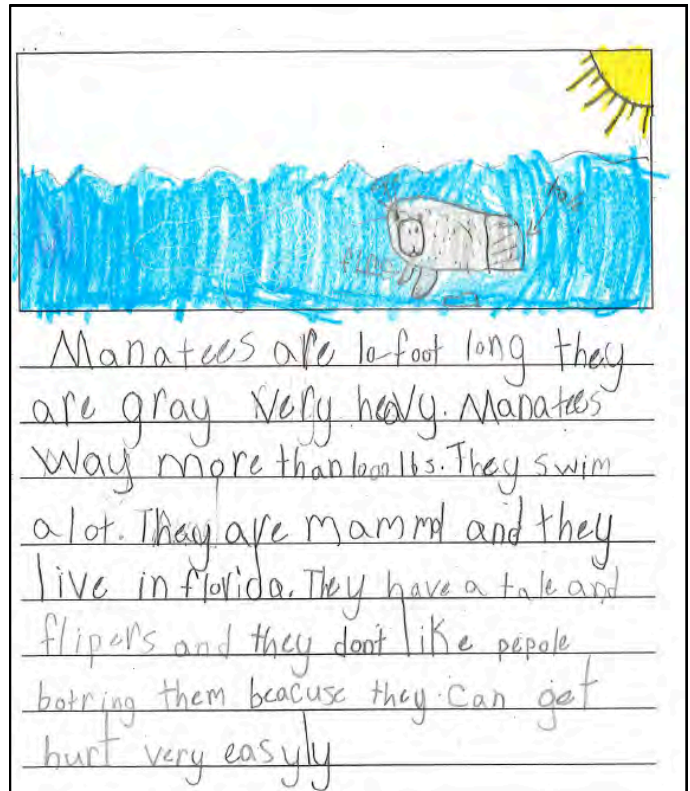 Manatees are 10-foot long they
are gray very heavy. Manatees
Way more than 1000 lbs. They swim
a lot. They are mammal and they
live in florida. They have a tale and
flipers and they dont like pepole
botring them beacuse they can get
hurt very easyly